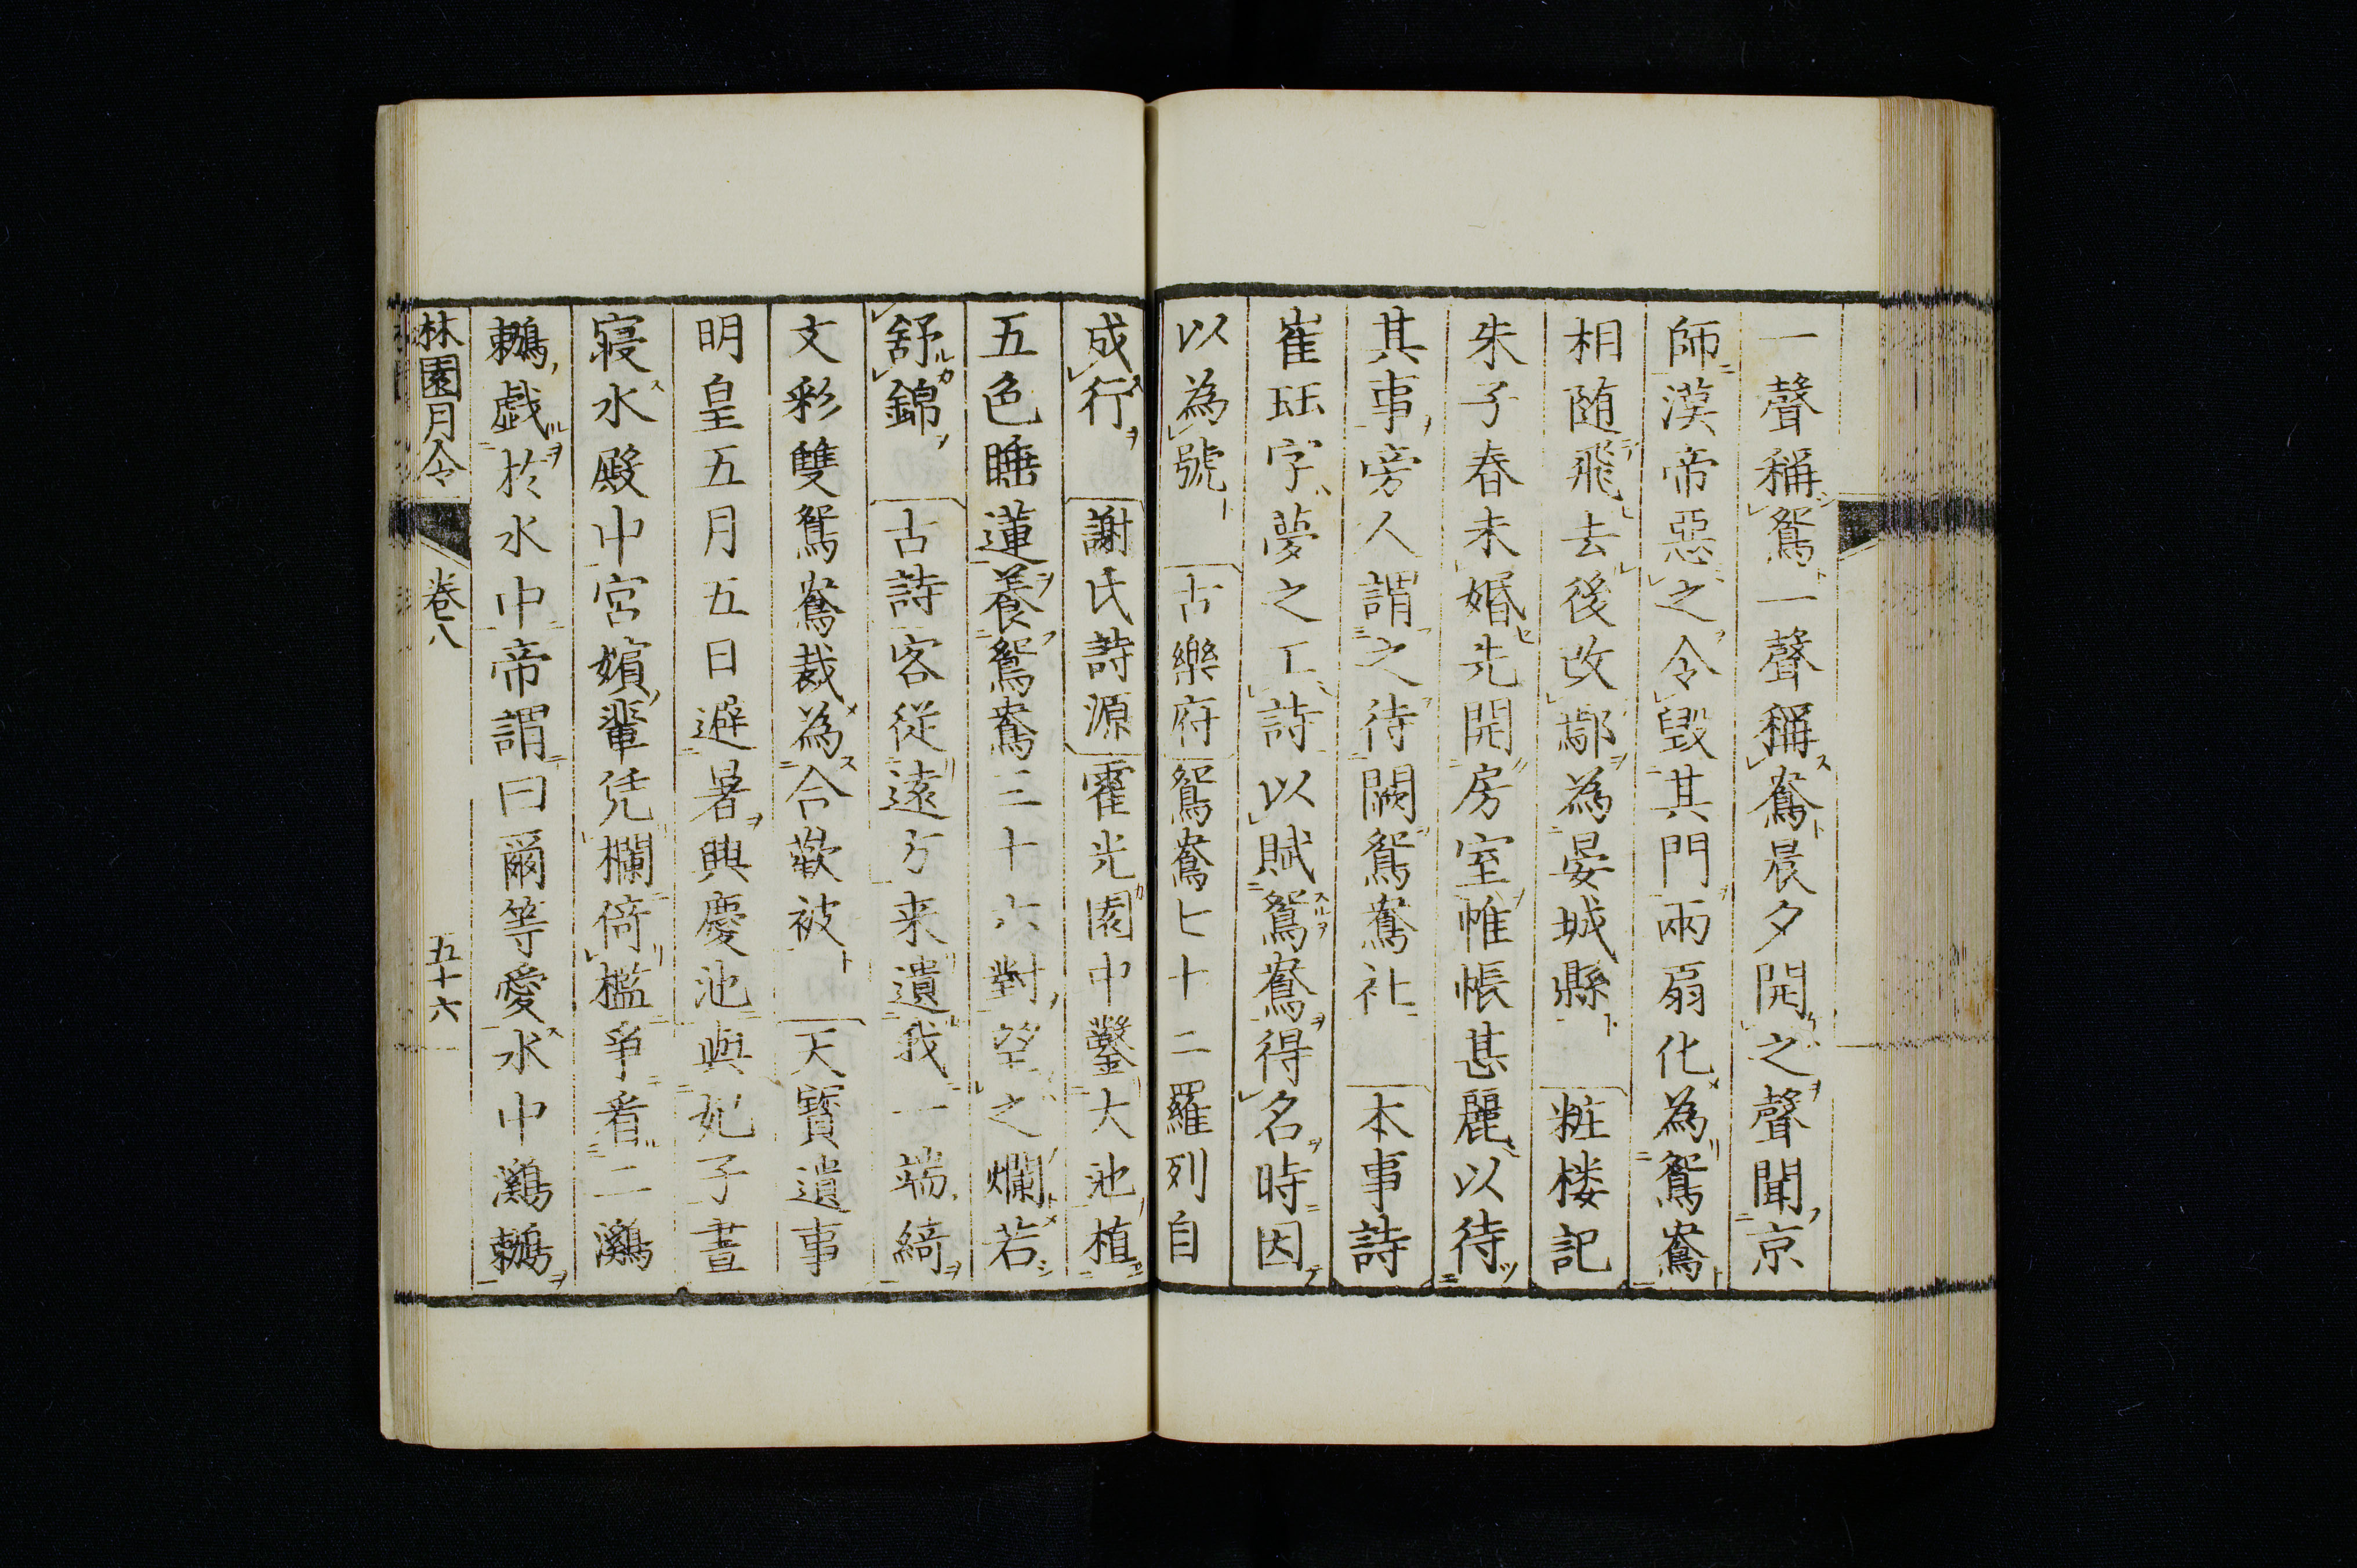 一聲稱鴛一聲稱鴦晨夕開之聲聞京
師漢帝惡之令毀其門兩扇化為鴛鴦
相随飛去後改鄢為晏城縣 粧楼記
朱子春未婚先開房室帷帳甚麗以待
其事旁人謂之待闕鴛鴦社 本事詩
崔珏字夢之工詩以賦鴛鴦得名時因
以為號 古樂府鴛鴦七十二羅列自
成行 謝氏詩源霍光園中鑿大池植
五色睡蓮養鴛鴦三十六對望之爛若
舒錦 古詩客從遠方来遺我一端綺
文彩雙鴛鴦裁為合歡被 天寶遺事
明皇五月五日避暑興慶池與妃子晝
寝水殿中宮嬪輩凭欄倚檻爭看二鸂
鶒戯於水中帝謂曰爾等愛水中鸂鶒
林園月令 卷八 五十六